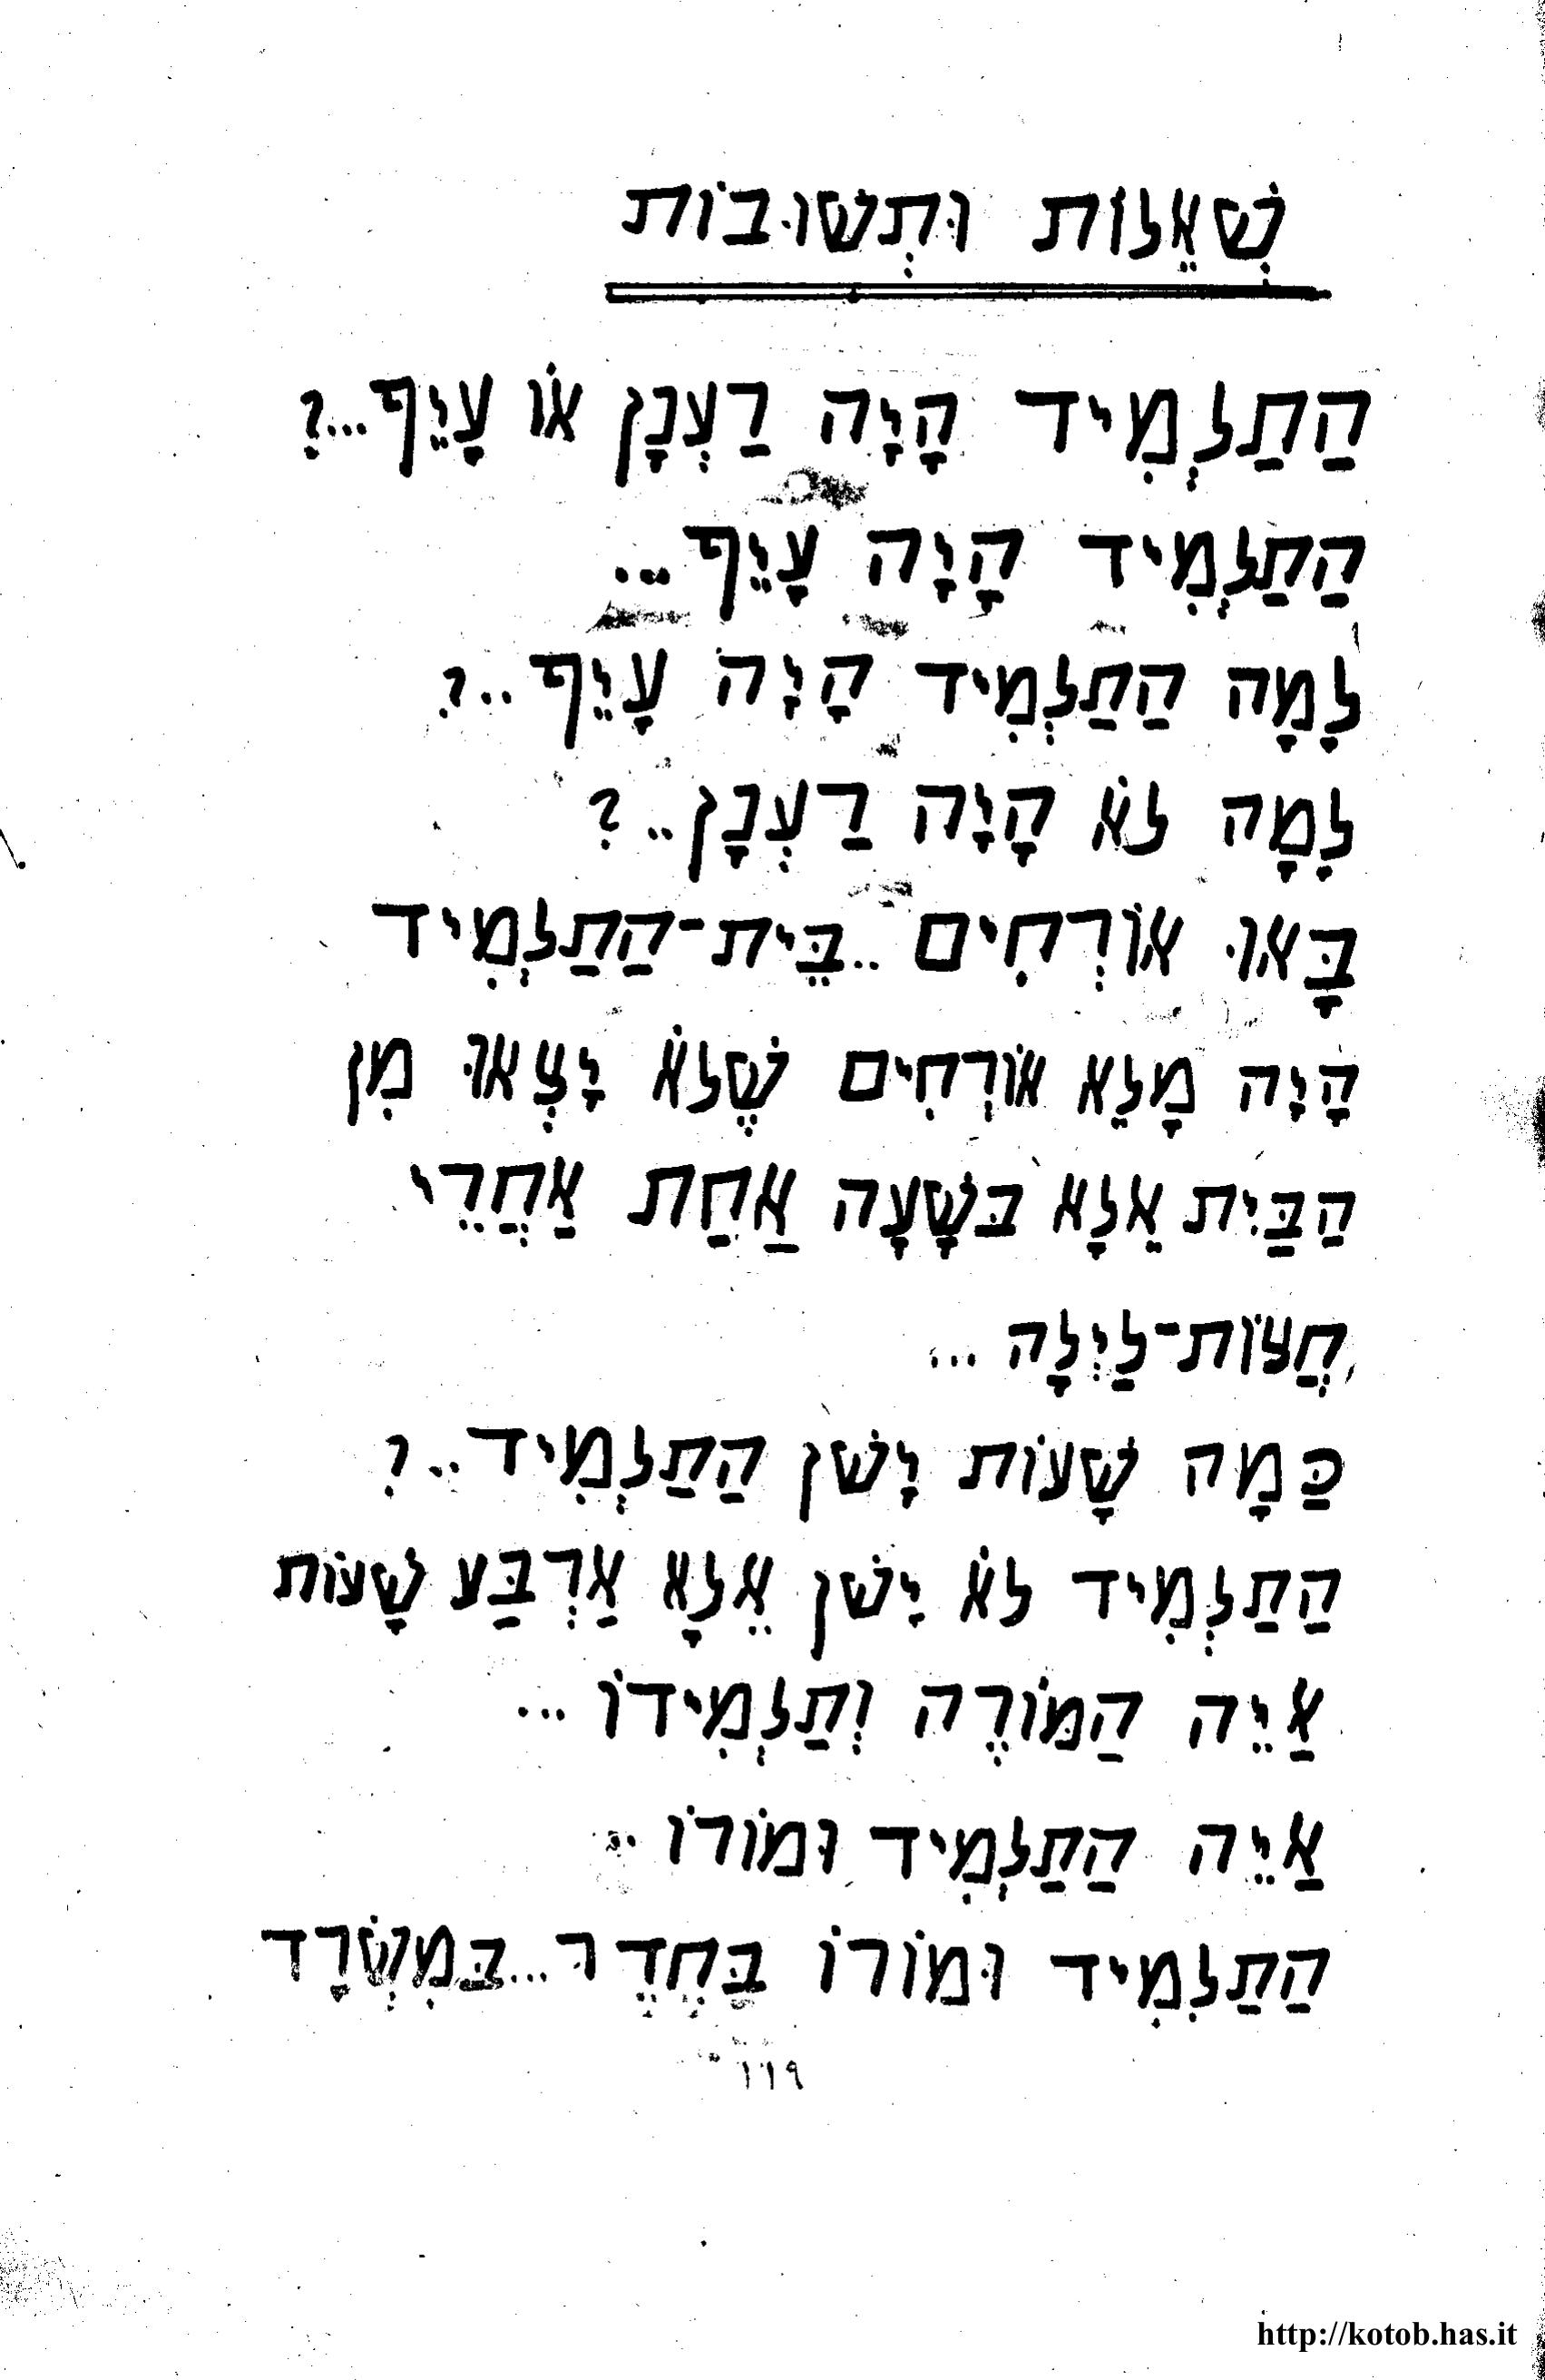 שְׁאֵלוֹת וּתְשׁוּבוֹת
הַתַּלְמִיד הָיָה רַעְנָן אוֹ עָיֵף...?
הַתַּלְמִיד הָיָה עָיֵף...
לָמָה הַתַּלְמִיד הָיָה עָיֵף..?
לָמָה לֹא הָיָה רַעְנָן..?
בָּאוּ אוֹרְחִים..בֵּית-הַתַּלְמִיד
הָיָה מָלֵא אוֹרְחִים שֶׁלֹּא יָצְאוּ מִן
הַבַּיִת אֵלָא בּשָׁעָה אַחַת אַחֲרֵי
חֲצוֹת-לַיְלָה...
כַּמָה שָׁעוֹת יָשׁן הַתַּלְמִיד..?
הַתַּלְמִיד לֹא יָשׁן אֵלָא אַרְבַּע שָׁעוֹת
אַיֵּה הַמּוֹרֶה וְתַלְמִידוֹ...
אַיֵּה הַתַּלְמִיד וּמוֹרוֹ..
הַתַּלְמִיד וּמוֹרוֹ בַּחֶדֶר...בַּמִשְׂרָד
١١٩
http://kotob.has.it